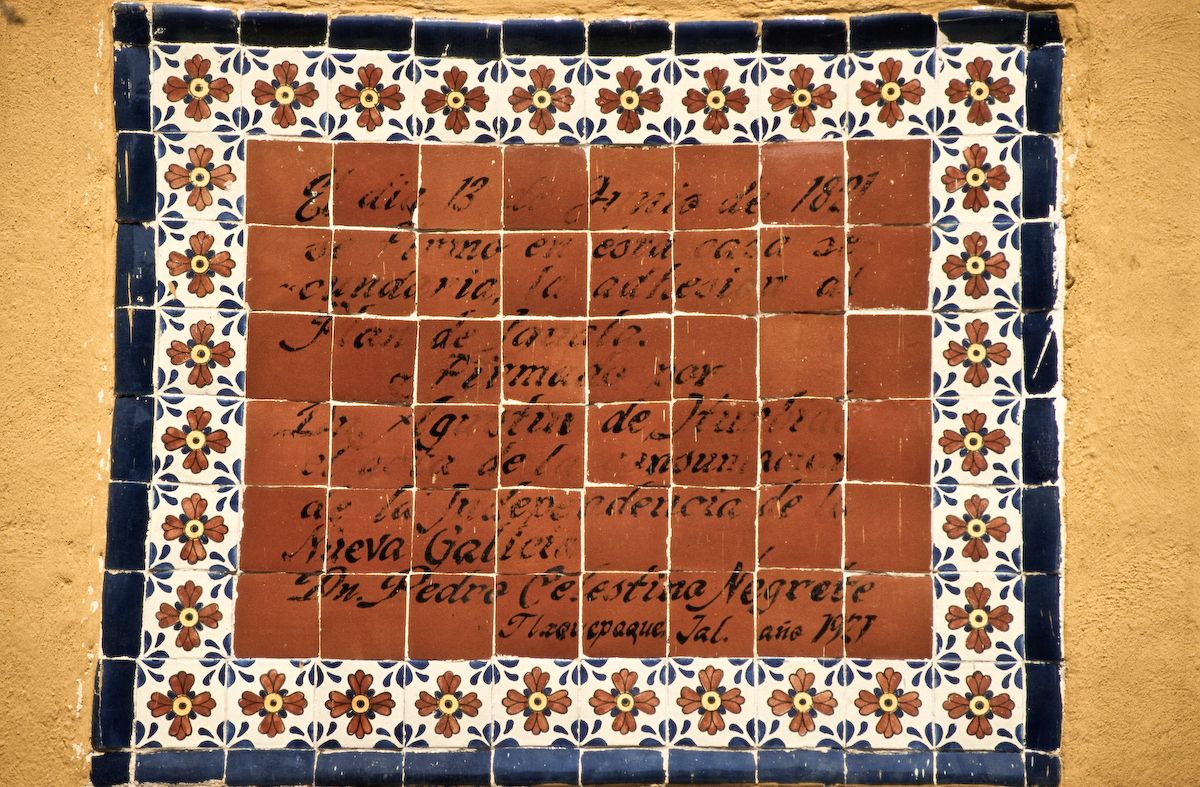 El dia 13 de Junio de 1821
se firmo en esta casa se
cundaria, la adhesion al
Plan de Iguala.
Firmado por
Dn. Agustin de Iturbide
de la consumacion
de la Independencia de la
Nueva Galicia
Dn. Pedro Celestino Negrete
Tlaquepaque, Jal. año